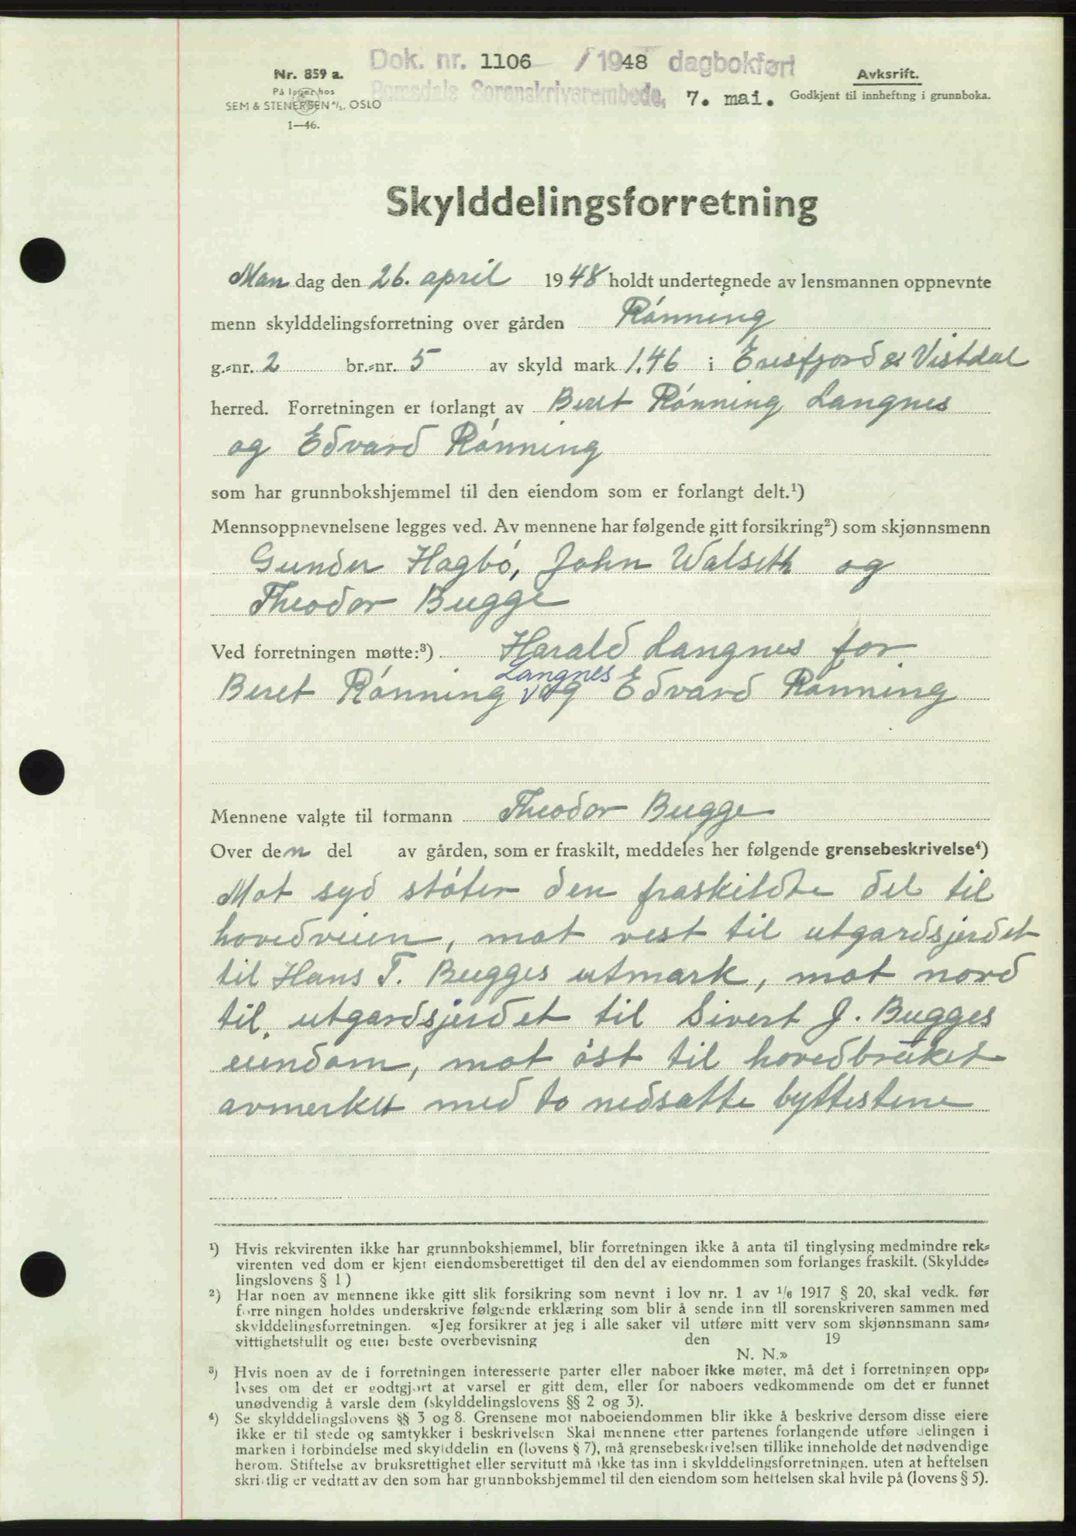 Dok. nr. 1106 / 1948 dagbokført
Romsdals Sorenskriverembede, 7. mai.
Nr. 859 a.
På lager hos
SEM & STENERSEN A/S, OSLO
1—46.
Avksrift.
Godkjent til innhefting i grunnboka.
Skylddelingsforretning
Man dag den 26. april 1948 holdt undertegnede av lensmannen oppnevnte
menn skylddelingsforretning over gården Rønning
g.-nr. 2 br.-nr. 5 av skyld mark 1,46 i Eresfjord & Vistdal
herred. Forretningen er forlangt av Beret Rønning Langnes
og Edvard Rønning
som har grunnbokshjemmel til den eiendom som er forlangt delt.¹)
Mennsoppnevnelsene legges ved. Av mennene har følgende gitt forsikring²) som skjønnsmenn
Gunder Hagbø, John Walseth og
Theodor Bugge
Ved forretningen møtte:³) Harald Langnes for
Beret Rønning Langnes og Edvard Rønning
Mennene valgte til formann Theodor Bugge
Over den del av gården, som er fraskilt, meddeles her følgende grensebeskrivelse⁴)
Mot syd støter den fraskildte del til
hovedveien, mot vest til utgardsjerdet
til Hans T. Bugges utmark, mot nord
til utgardsjerdet til Sivert J. Bugges
eiendom, mot øst til hovedbruket
avmerket med to nedsatte byttestene
¹) Hvis rekvirenten ikke har grunnbokshjemmel, blir forretningen ikke å anta til tinglysing medmindre rek-
virenten ved dom er kjent eiendomsberettiget til den del av eiendommen som forlanges fraskilt. (Skyldde-
lingslovens § 1)
²) Har noen av mennene ikke gitt slik forsikring som nevnt i lov nr. 1 av 1/6 1917 § 20, skal vedk. før
forretningen holdes underskrive følgende erklæring som blir å sende inn til sorenskriveren sammen med
skylddelingsforretningen. «Jeg forsikrer at jeg i alle saker vil utføre mitt verv som skjønnsmann sam-
vittighetsfullt og etter beste overbevisning den 19
N. N.»
³) Hvis noen av de i forretningen interesserte parter eller naboer ikke møter, må det i forretningen opp-
lyses om det er godtgjort at varsel er gitt dem, eller for naboers vedkommende om det er funnet
unødvendig å varsle dem (skylddelingslovens §§ 2 og 3).
⁴) Se skylddelingslovens §§ 3 og 8. Grensene mot naboeiendommen blir ikke å beskrive dersom disse eiere
ikke er til stede og samtykker i beskrivelsen Skal mennene etter partenes forlangende utføre delingen i
marken i forbindelse med skylddelingen (lovens § 7), må grensebeskrivelsen tillike inneholde det nødvendige
herom. Stiftelse av bruksrettighet eller servitutt må ikke tas inn i skylddelingsforretningen. uten at heftelsen
skriftlig er vedtatt av den som har grunnbokshjemmel til den eiendom som heftelsen skal hvile på (lovens § 5).